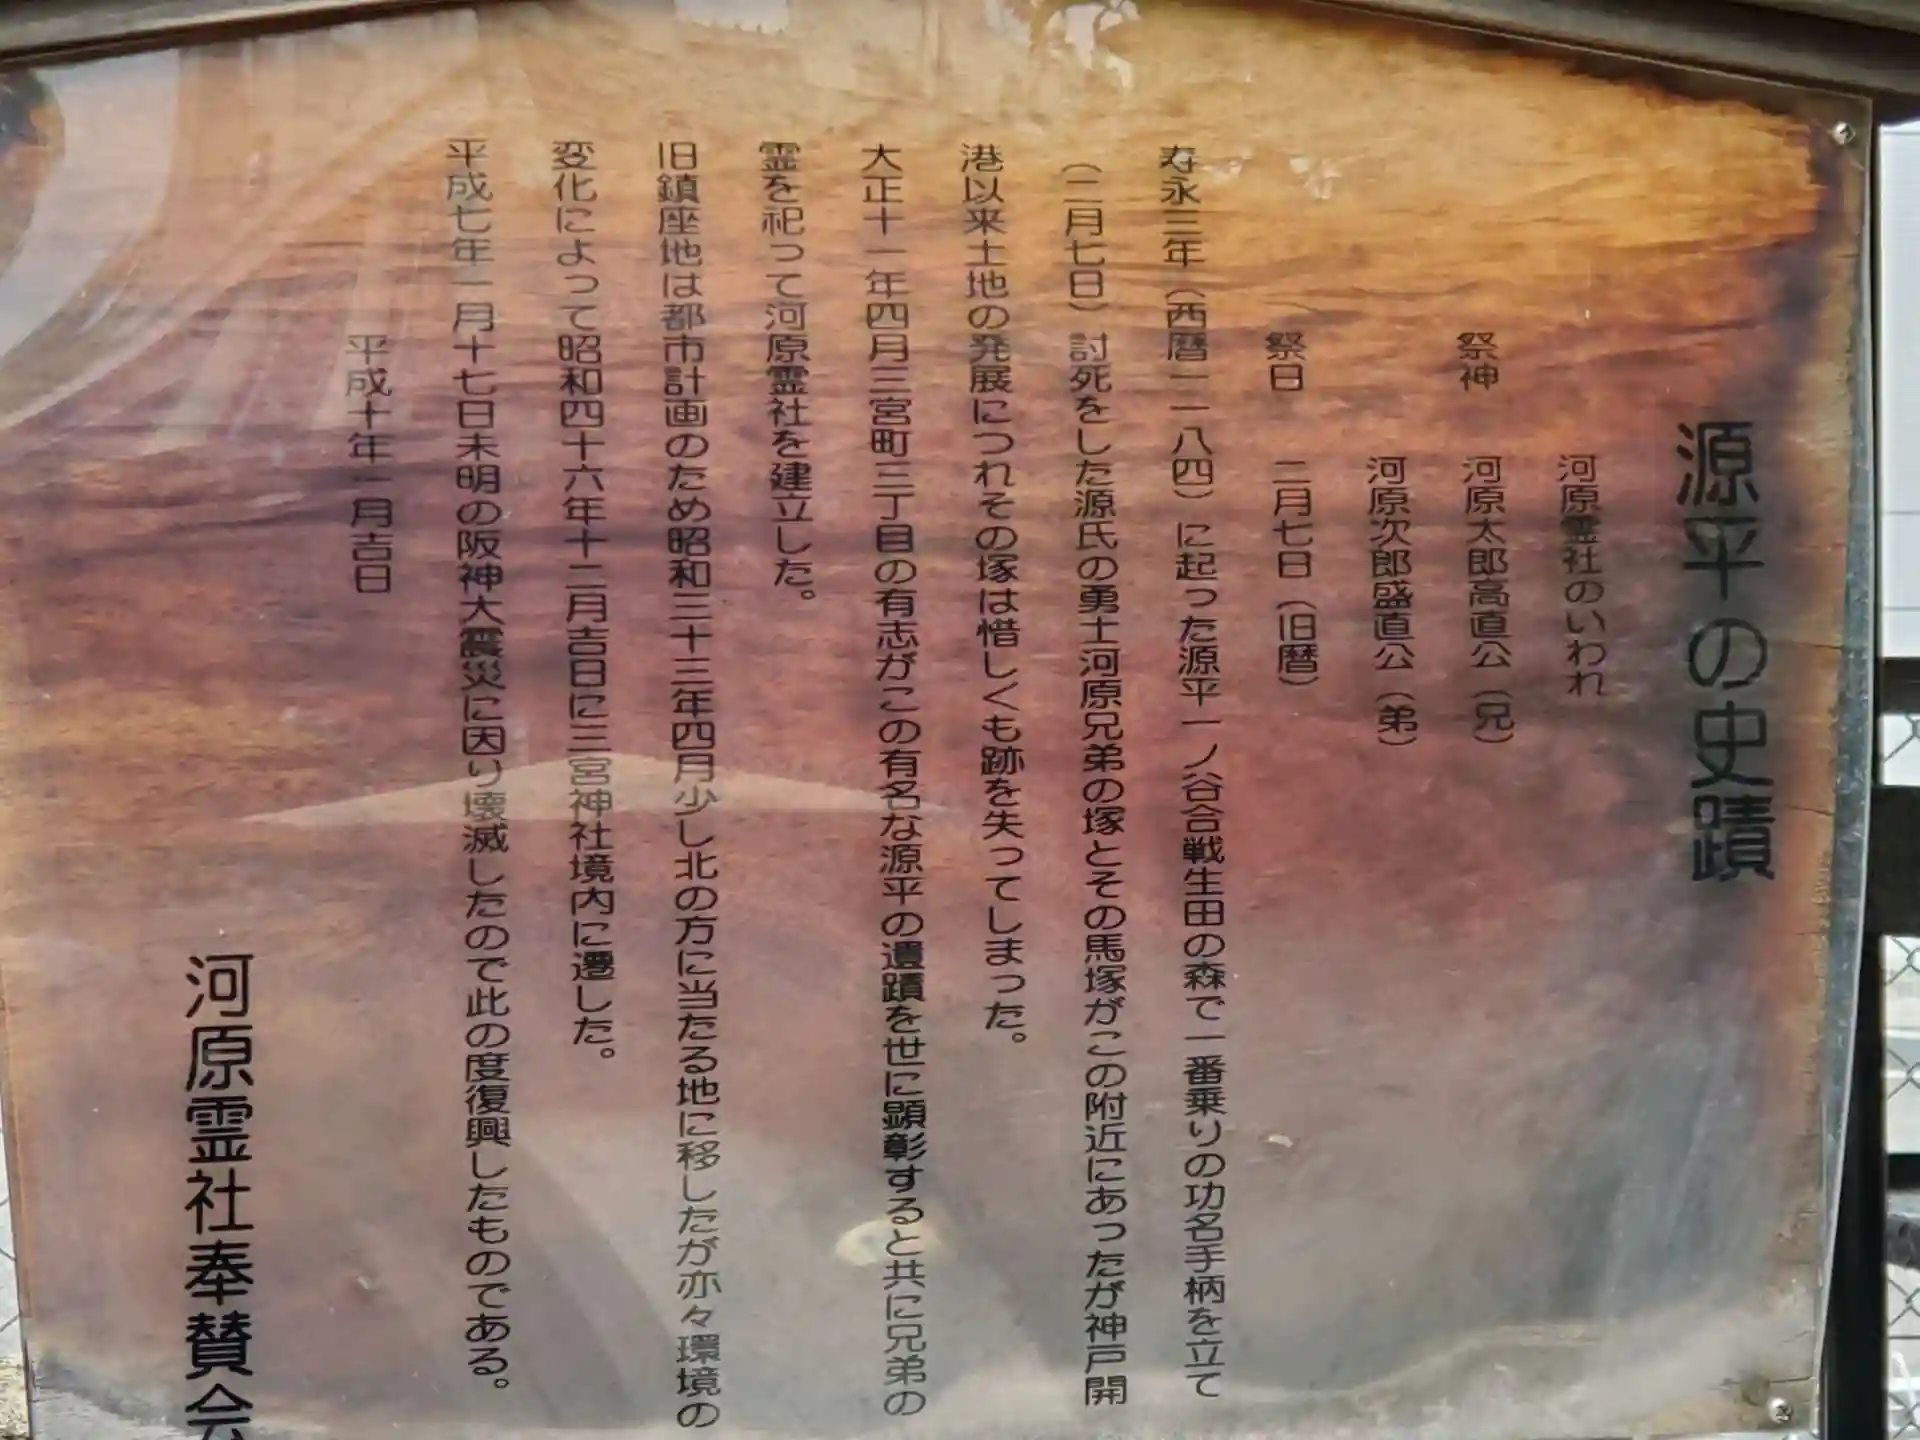 源平の史蹟
河原霊社のいわれ
祭神 河原太郎高直公（兄）
河原次郎盛直公（弟）
祭日 二月七日（旧暦）
寿永三年（西暦一一八四）に起った源平一ノ谷合戦生田の森で一番乗りの功名手柄を立て
（二月七日）討死をした源氏の勇士河原兄弟の塚とその馬塚がこの附近にあったが神戸開
港以来土地の発展につれその塚は惜しくも跡を失ってしまった。
大正十一年四月三宮町三丁目の有志がこの有名な源平の遺蹟を世に顕彰すると共に兄弟の
霊を祀って河原霊社を建立した。
旧鎮座地は都市計画のため昭和三十三年四月少し北の方に当たる地に移したが亦々環境の
変化によって昭和四十六年十二月吉日に三宮神社境内に遷した。
平成七年一月十七日未明の阪神大震災に因り壊滅したので此の度復興したものである。
平成十年一月吉日
河原霊社奉賛会